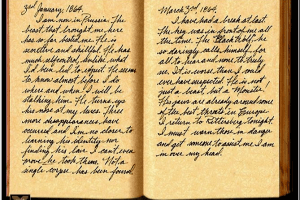 3rd January, 1864.
I am now in Russia. The
beast that brought me here
has so far eluded me. He is
secretive and skillful. He has
much influence, doubt what
I'd been led to expect. He seems
to know almost before I do
where and when I will be
stalking him. He turns up
his nose at my lures. Three
more disappearances have
occured and I'm no closer to
learning his identity nor
finding his lair. I can't even
prove he took them. Not a
single corpse has been found.
March 3rd, 1864.
I have had a break at last.
The key was in front of me all
the time. The he
so daringly calls himself for
all to hear and none to truly
see. It is worse than I could
ever have suspected. He is not
just a beast, but a Monster.
His jaws are already around some
of the best throats in Europe.
I return to Rittersberg tonight.
I must warn those in danger
and get someone to assist me. I am
in over my head.